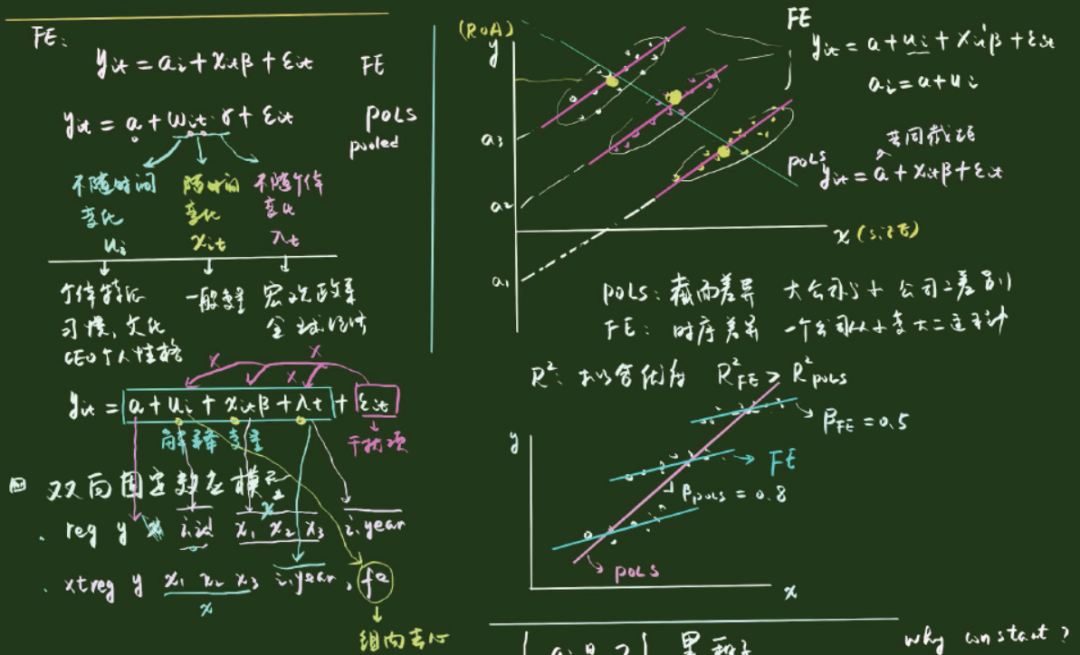 FE:
yit = ai + xitβ + εit FE
yit = a + wit·γ + εit POLS
pooled
不随时间 随时间 不随个体
变化 变化 变化
ui xit λt
个体特征 一般变量 宏观政策
习惯,文化 全球经济
CEO个人性格
x x x
yit = a + ui + xitβ + λt + εit
解释变量 干扰项
双向固定效应模型
x
. reg y i.id x1 x2 x3 i.year
. xtreg y x1 x2 x3 i.year, fe
x
组内去心
(ROA)
y
a3
a2
a1
x (size)
FE
yit = a + ui + xit'β + εit
ai = a + ui
共同截距
POLS yit = a + xitβ + εit
POLS: 截面差异 大公司与小公司之差别
FE: 时序差异 一个公司从小变大
R²: 拟合优度 R²FE > R²POLS
y
βFE = 0.5
FE
βpols = 0.8
POLS
x
why constant?